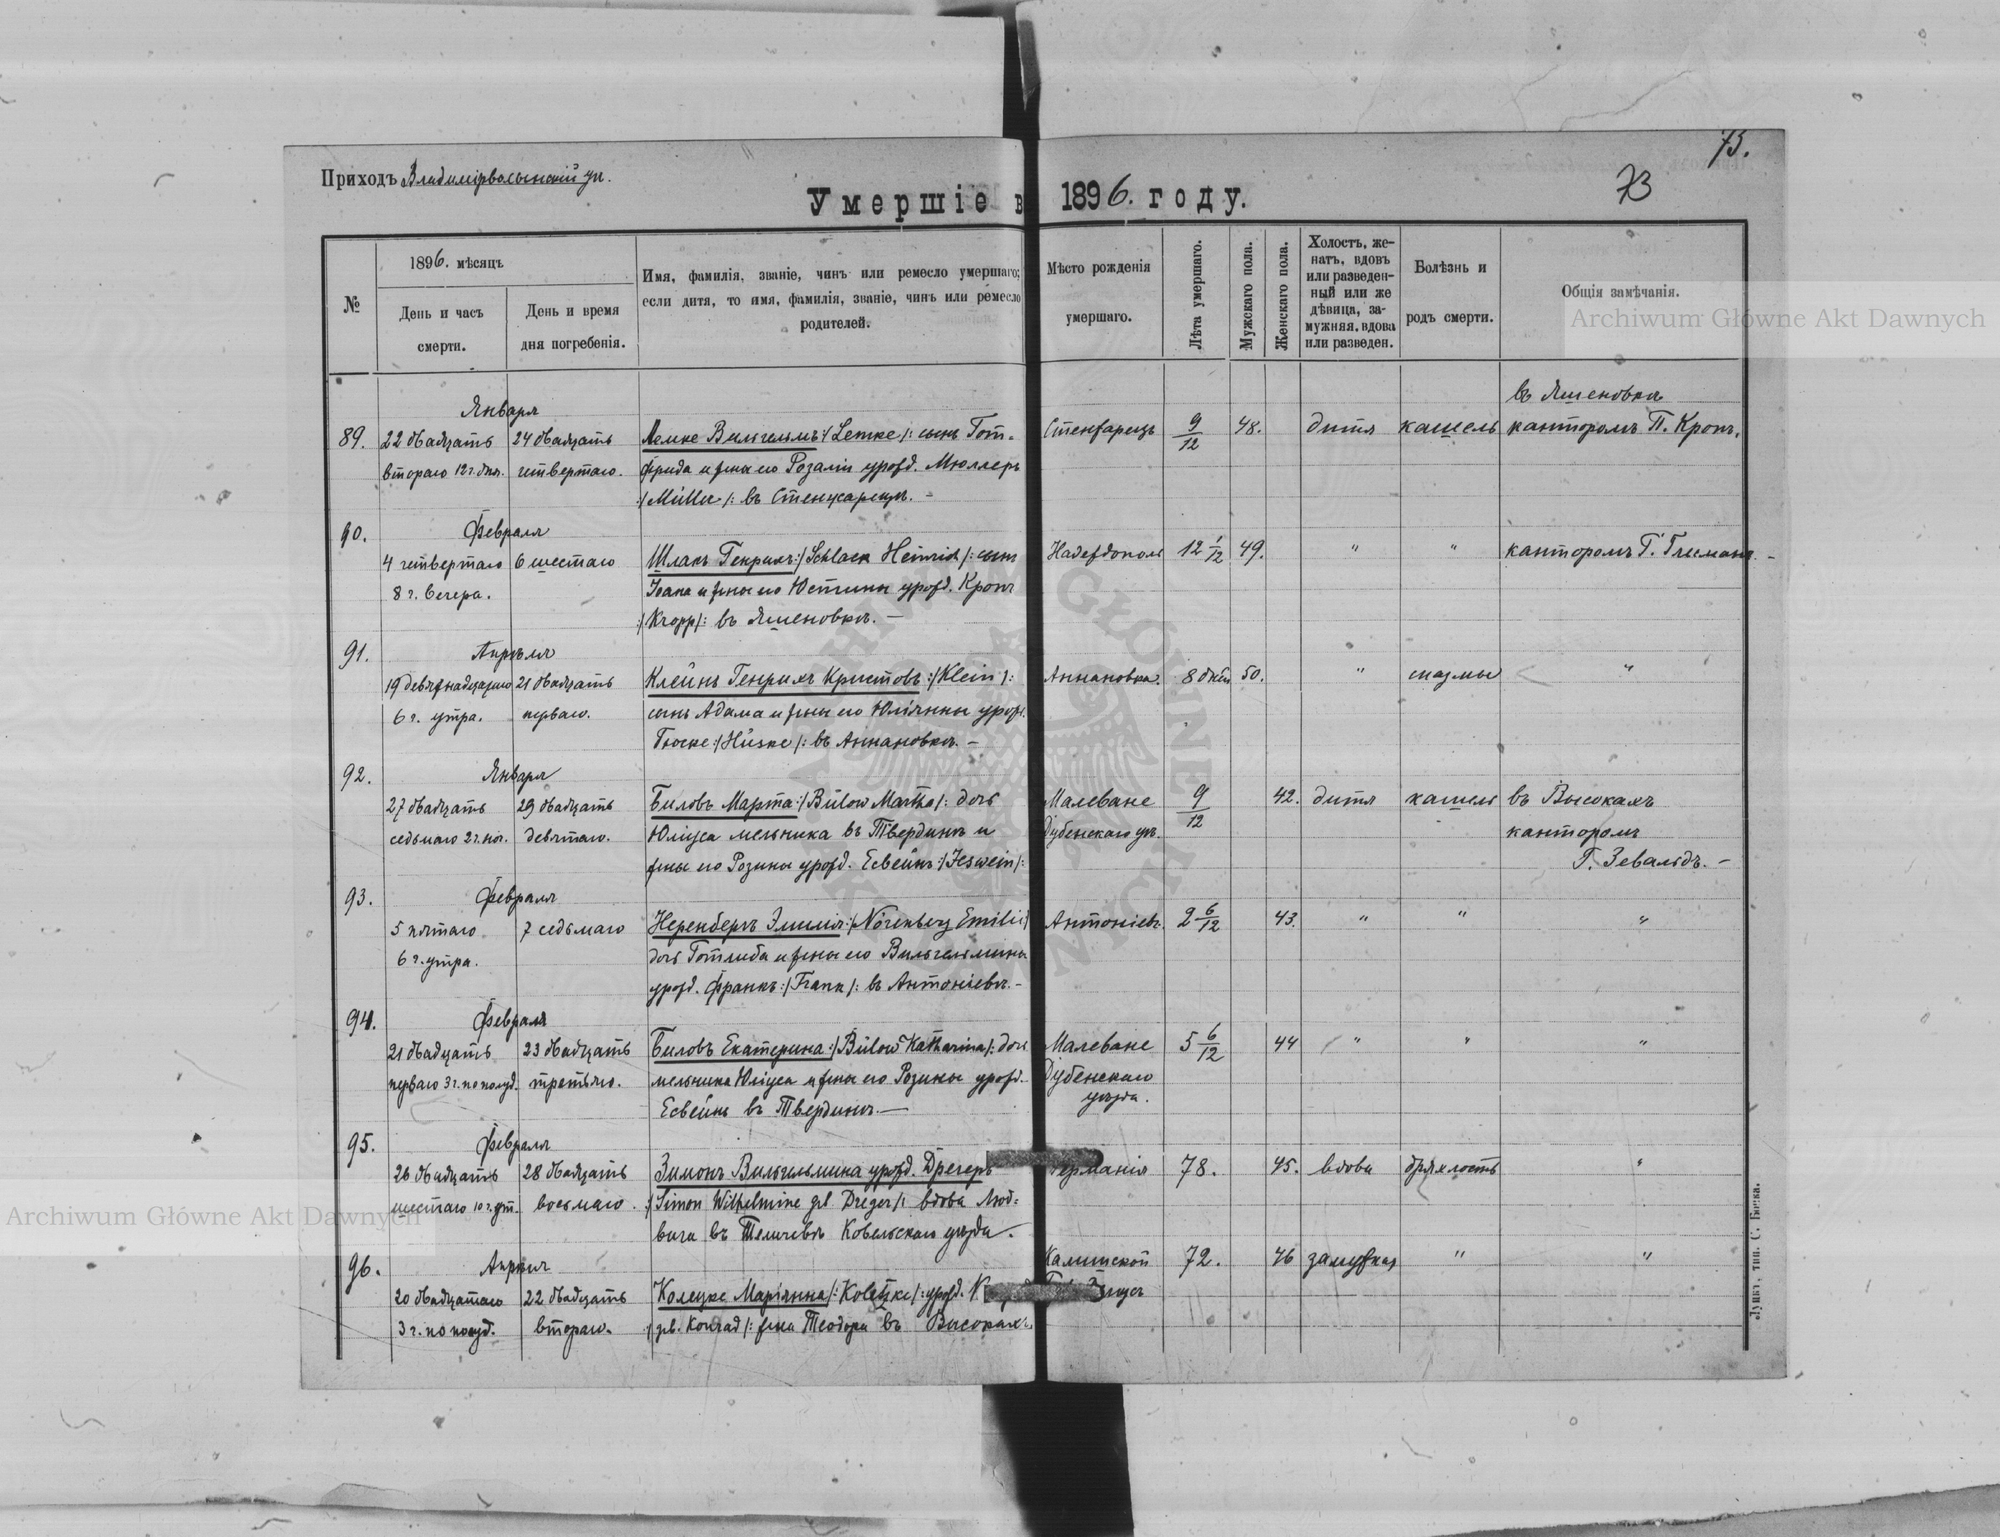 73.
73
Приходъ Владимірволынскій у.
Умершіе в 1896. году.
№
1896. мѣсяцъ
День и часъ смерти.
День и время дня погребенія.
Имя, фамилія, званіе, чинъ или ремесло умершаго;
если дитя, то имя, фамилія, званіе, чинъ или ремесло
родителей.
Мѣсто рожденія
умершаго.
Лѣта умершаго.
Мужскаго пола.
Женскаго пола.
Холостъ, же-
натъ, вдовъ
или разведен-
ный или же
дѣвица, за-
мужняя, вдова
или разведен.
Болѣзнь и
родъ смерти.
Общія замѣчанія.
Archiwum Główne Akt Dawnych
Января въ Яшеновкѣ
89. 22 двадцать 24 двадцать Лемке Вильгельмъ :/Lemke/: сынъ Гот- 9/12 48. дитя кашель канторомъ П. Кропъ.
втораго 12 ч. дня. четвертаго. фрида и жены его Розаліи урожд. Мюллеръ
:/Müller/: въ
90. Февраля
4 четвертаго 6 шестаго Шлакъ Генрихъ :/Schlack Heinrich/: сынъ 12 1/12 49. " " канторомъ Г.
8 ч. вечера. Іоана и жены его Юстины урожд. Кропъ
:/Kropp/: въ Яшеновкѣ. —
91. Апрѣля
19 девятнадцатаго 21 двадцать Клейнъ Генрихъ Кристовъ :/Klein/: Аннановка. 8 дней 50. " спазмы "
6 ч. утра. перваго. сынъ Адама и жены его Юліянны урож.
Гюске :/Hüske/: въ Аннановкѣ. —
92. Января
27 двадцать 29 двадцать Биловъ Марта :/Bülow Martha/: дочь Малеване 9/12 42. дитя кашель въ Высокахъ
седьмаго 2 ч. девятаго. Юліуса мельника въ Твердинѣ и Дубенскаго уѣ. канторомъ
жены его Розины урожд. Есвейнъ :/Jeswein/: Г. Зевальдъ. —
93. Февраля
5 пятаго 7 седьмаго Неренбергъ Эмилія :/Nörenberg Emilie/ Антоніевъ. 2 6/12 43. " " "
6 ч. утра. дочь Готлиба и жены его Вильгельмины
урожд. Франкъ :/Frank/: въ Антоніевѣ. —
94. Февраля
21 двадцать 23 двадцать Биловъ Екатерина :/Bülow Katharina/: дочь Малеване 5 6/12 44 " " "
перваго 3 ч. по полуд. третьяго. мельника Юліуса и жены его Розины урожд. Дубенскаго
Есвейнъ въ Твердинѣ — уѣзда.
95. Февраля
26 двадцать 28 двадцать Зимонъ Вильгельмина урожд. Дрегеръ Германія 78. 45. вдова дряхлость "
шестаго 10 ч. ут. восьмаго. :/Simon Wilhelmine geb Dreger/: вдова Люд-
вига въ Ковельскаго уѣзда.
96. Апрѣля Калишской 72. 46 замужняя " "
20 двадцатаго 22 двадцать Колецке Маріянна /:Koletzke/: урожд.
3 ч. по полуд. втораго. :/geb. Konrad/: жена Теодора въ Высокахъ
Archiwum Główne Akt Dawnych
Луцкъ, тип. С. Бокса.